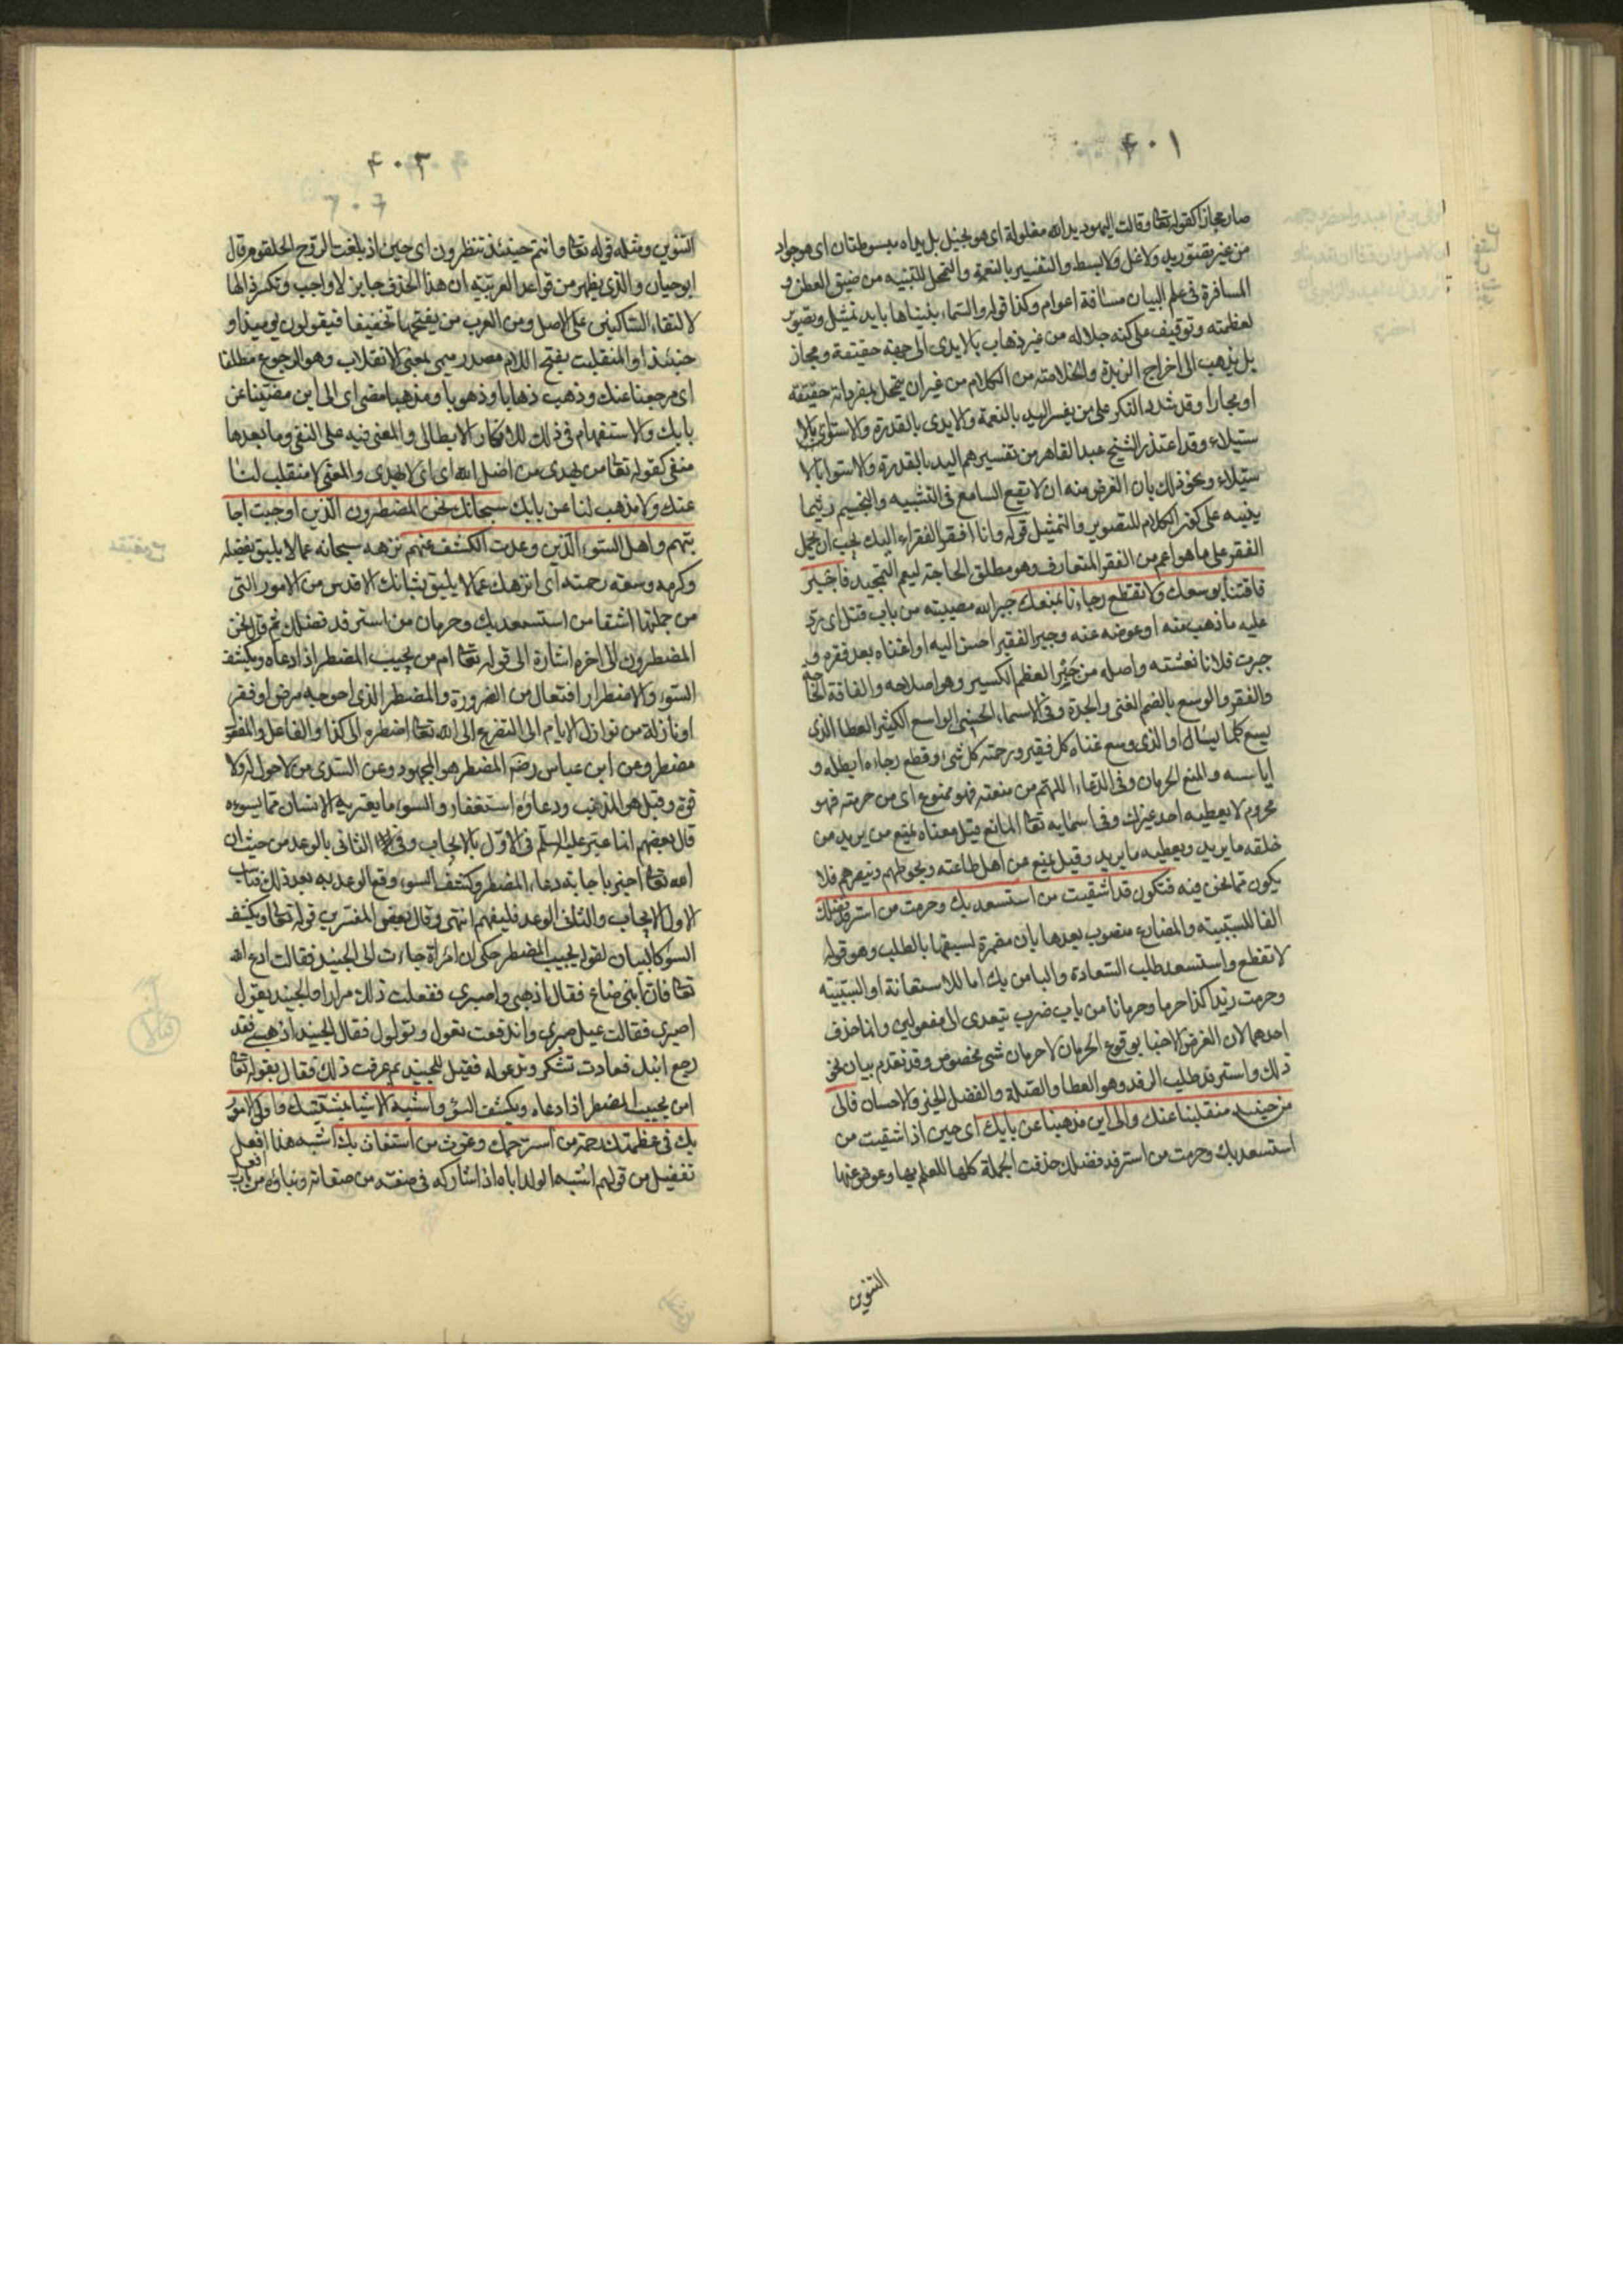 ٤٠١
صار مجازا كقوله تعا وقالت اليهود يد الله مغلولة اى هو بخيل بل يداه مبسوطتان اى هو جواد
من غير تصوّر يد ولا غل ولا بسط والتفسير بالنعمة والتمحل للتثنيه من ضيق العطن و
المسافرة فى علم البيان مسافة اعوام وكذا قوله والسّماء بنيناها بايد تمثيل وتصوير
لعظمته وتوقيف على كنه جلاله من غير ذهاب بالايدى الى جهة حقيقة ومجاز
بل يذهب الى اخراج الزبدة والخلاصة من الكلام من غير ان يتمحل لمفرداته حقيقة
او مجازا وقد شدد النكر على من يفسر اليد بالنعمة والايدى بالقدرة والاستواء بالا
ستيلاء وقد اعتذر الشيخ عبد القاهر من تفسيرهم اليد بالقدرة والاستوا بالا
ستيلاء ونحو ذلك بان الغرض منه ان لا تقع السامع فى التشبيه والتجسيم ريثما
يتنبه على كون الكلام للتصوير والتمثيل قوله وانا افقر الفقراء اليك يجب ان يحمل
الفقر على ما هو اعم من الفقر المتعارف وهو مطلق الحاجة ليعم التمجيد فاجبر
فاقتنا بوسعك ولا تقطع رجاءنا بمنعك جبر الله مصيبته من باب قتل اى رد
عليه ما ذهب منه او عوضه عنه وجبر الفقير احسن اليه او اغناه بعد فقره و
جبرت فلانا نعشته واصله من جَبْر العظم الكسير وهو اصلاحه والفاقة الحاجة
والفقر والوسع بالضم الغنى والجدة وفى الاسماء الحسنى الواسع الكثير العطا الذى
يسع كلما يسأل او الذى وسع غناه كل فقير ورحمته كل شئ وقطع رجاءه ابطله و
اياسه والمنع الحرمان وفى الدعاء اللهم من منعته فهو ممنوع اى من حرمته فهو
محروم لا يعطيه احد غيرك وفى اسمايه تعا المانع قيل معناه يمنع من يريد من
خلقه ما يريد ويعطيه ما يريد وقيل يمنع من اهل طاعته ويحوطهم وينصرهم فلا
يكون مما نحن فيه فتكون قد اشقيت من استسعد بك وحرمت من استرفد فضلك
الفا للسببيته والمضارع منصوب بعدها بان مضمرة لسبقها بالطلب وهو قوله
لا تقطع واستسعد طلب السّعادة والبا من بك اما للاستعانة او السّببيّه
وحرمت زيدا كذا حرما وحرمانا من باب ضرب يتعدى الى مفعولين وانما حذف
احدهما لان الغرض الاخبا بوقوع الحرمان لا حرمان شى مخصوص وقد تقدم بيان نحو
ذلك واسترفد طلب الرفد وهو العطا والصّلة والفضل الخير والاحسان فالى
من حينئذ منقلبنا عنك والى اين مذهبنا عن بابك اى حين اذ اشقيت من
استسعد بك وحرمت من استرفد فضلك حذفت الجملة كلها للعلم بها وعوض عنها
التنوين
٤٠٢
٤٠٢
التنوين ومثله قوله تعا وانتم حينئذ تنظرون اى حين اذ بلغت الروح الحلقوم وقال
ابو حيان والذى يظهر من قواعد العربيّة ان هذا الحذف جايز لا واجب وتكسر ذالها
لالتقاء السّاكنين على الاصل ومن العرب من يفتحها تخفيفا فيقولون يوميذا و
حينئذا والمنقلب بفتح اللام مصدر ميمى بمعنى الانقلاب وهو الرجوع مطلقا
اى مرجعنا عنك وذهب ذهابا وذهوبا ومذهبا مضى اى الى اين مضيّنا عن
بابك والاستفهام فى ذلك للانكار الابطالى والمعنى فيه على النفى وما بعدها
منفى كقوله تعا من يهدى من اضل الله اى اى لا يهدى والمعنى لا منقلب لنا
عنك ولا مذهب لنا عن بابك سبحانك نحن المضطرون الّذين اوجبت اجا
بتهم واهل السّوء الّذين وعدت الكشف عنهم نزهه سبحانه عما لا يليق بفضله
وكرمه وسعة رحمته اى انزهك عما لا يليق بشانك الاقدس من الامور التى
من جملتها اشقا من استسعد بك وحرمان من استرفد فضلك ثم قوله نحن
المضطرون الى اخره اشارة الى قوله تعا ام من يجيب المضطر اذا دعاه ويكشف
السّوء والاضطرار افتعال من الضرورة والمضطر الذى احوجه مرض او فقر
او نازلة من نوازل الايام الى التضرع الى الله تعا اضطره الى كذا والفاعل والمفعول
مضطر وعن ابن عباس رضة المضطر هو المجهود وعن السّدى من لا حول له ولا
قوة وقيل هو المذنب ودعاؤه استغفار والسوء ما يعتريه الانسان مما يسوءه
قال بعضهم انما عبّر عليه السلم فى الاوّل بالايجاب وفى الثانى بالوعد من حيث ان
الله تعا اخبر باجابة دعاء المضطر وكشف السوء وقع الوعد به بعد ذلك فناسب
الاول الايجاب والثانى الوعد فليفهم انتهى وقال بعض المفسّرين قوله تعا ويكشف
السّوء كالبيان لقوله يجيب المضطر حكى ان امرأة جاءت الى الجنيد فقالت ادع الله
تعا فان ابنى ضاع فقال اذهبى واصبرى ففعلت ذلك مرارا والجنيد يقول
اصبرى فقالت عيل صبرى واندفعت تقول وتولول فقال الجنيد اذهبى فقد
رجع ابنك فعادت تشكر وتدعو له فقيل للجنيد بم عرفت ذلك فقال بقوله تعا
امن يجيب المضطر اذا دعاه ويكشف السّوء واشبه الاشيا بمشيّتك واولى الامور
بك فى عظمتك رحمة من استرحمك وغوث من استغاث بك اشبه هنا افعل
تفضيل من قولهم اشبه الولد اباه اذا شاركه فى صفة من صفاته وبناؤه من باب افعل